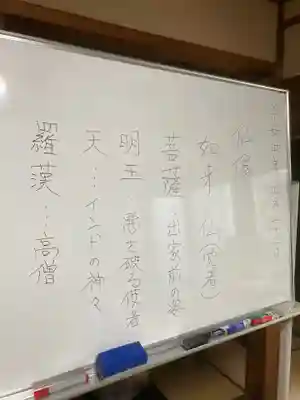 仏像
如来…仏(覚者)
菩薩…出家前の姿
明王…悪を破る使者
天…インドの神々
羅漢…高僧